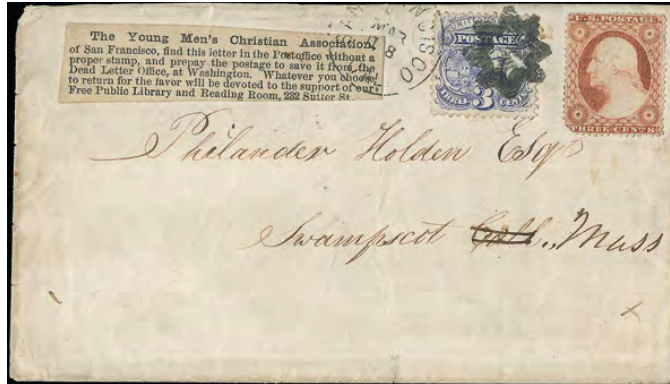 The Young Men's Christian Association,
of San Francisco, find this letter in the Postoffice without a
proper stamp, and prepay the postage to save it from the
Dead Letter Office, at Washington. Whatever you choose
to return for the favor will be devoted to the support of our
Free Public Library and Reading Room, 232 Sutter St.
MAR
8
CISCO
POSTAGE
3
U.S. POSTAGE
THREE CENTS
Philander Holden Esq
Swampscot Call., Mass